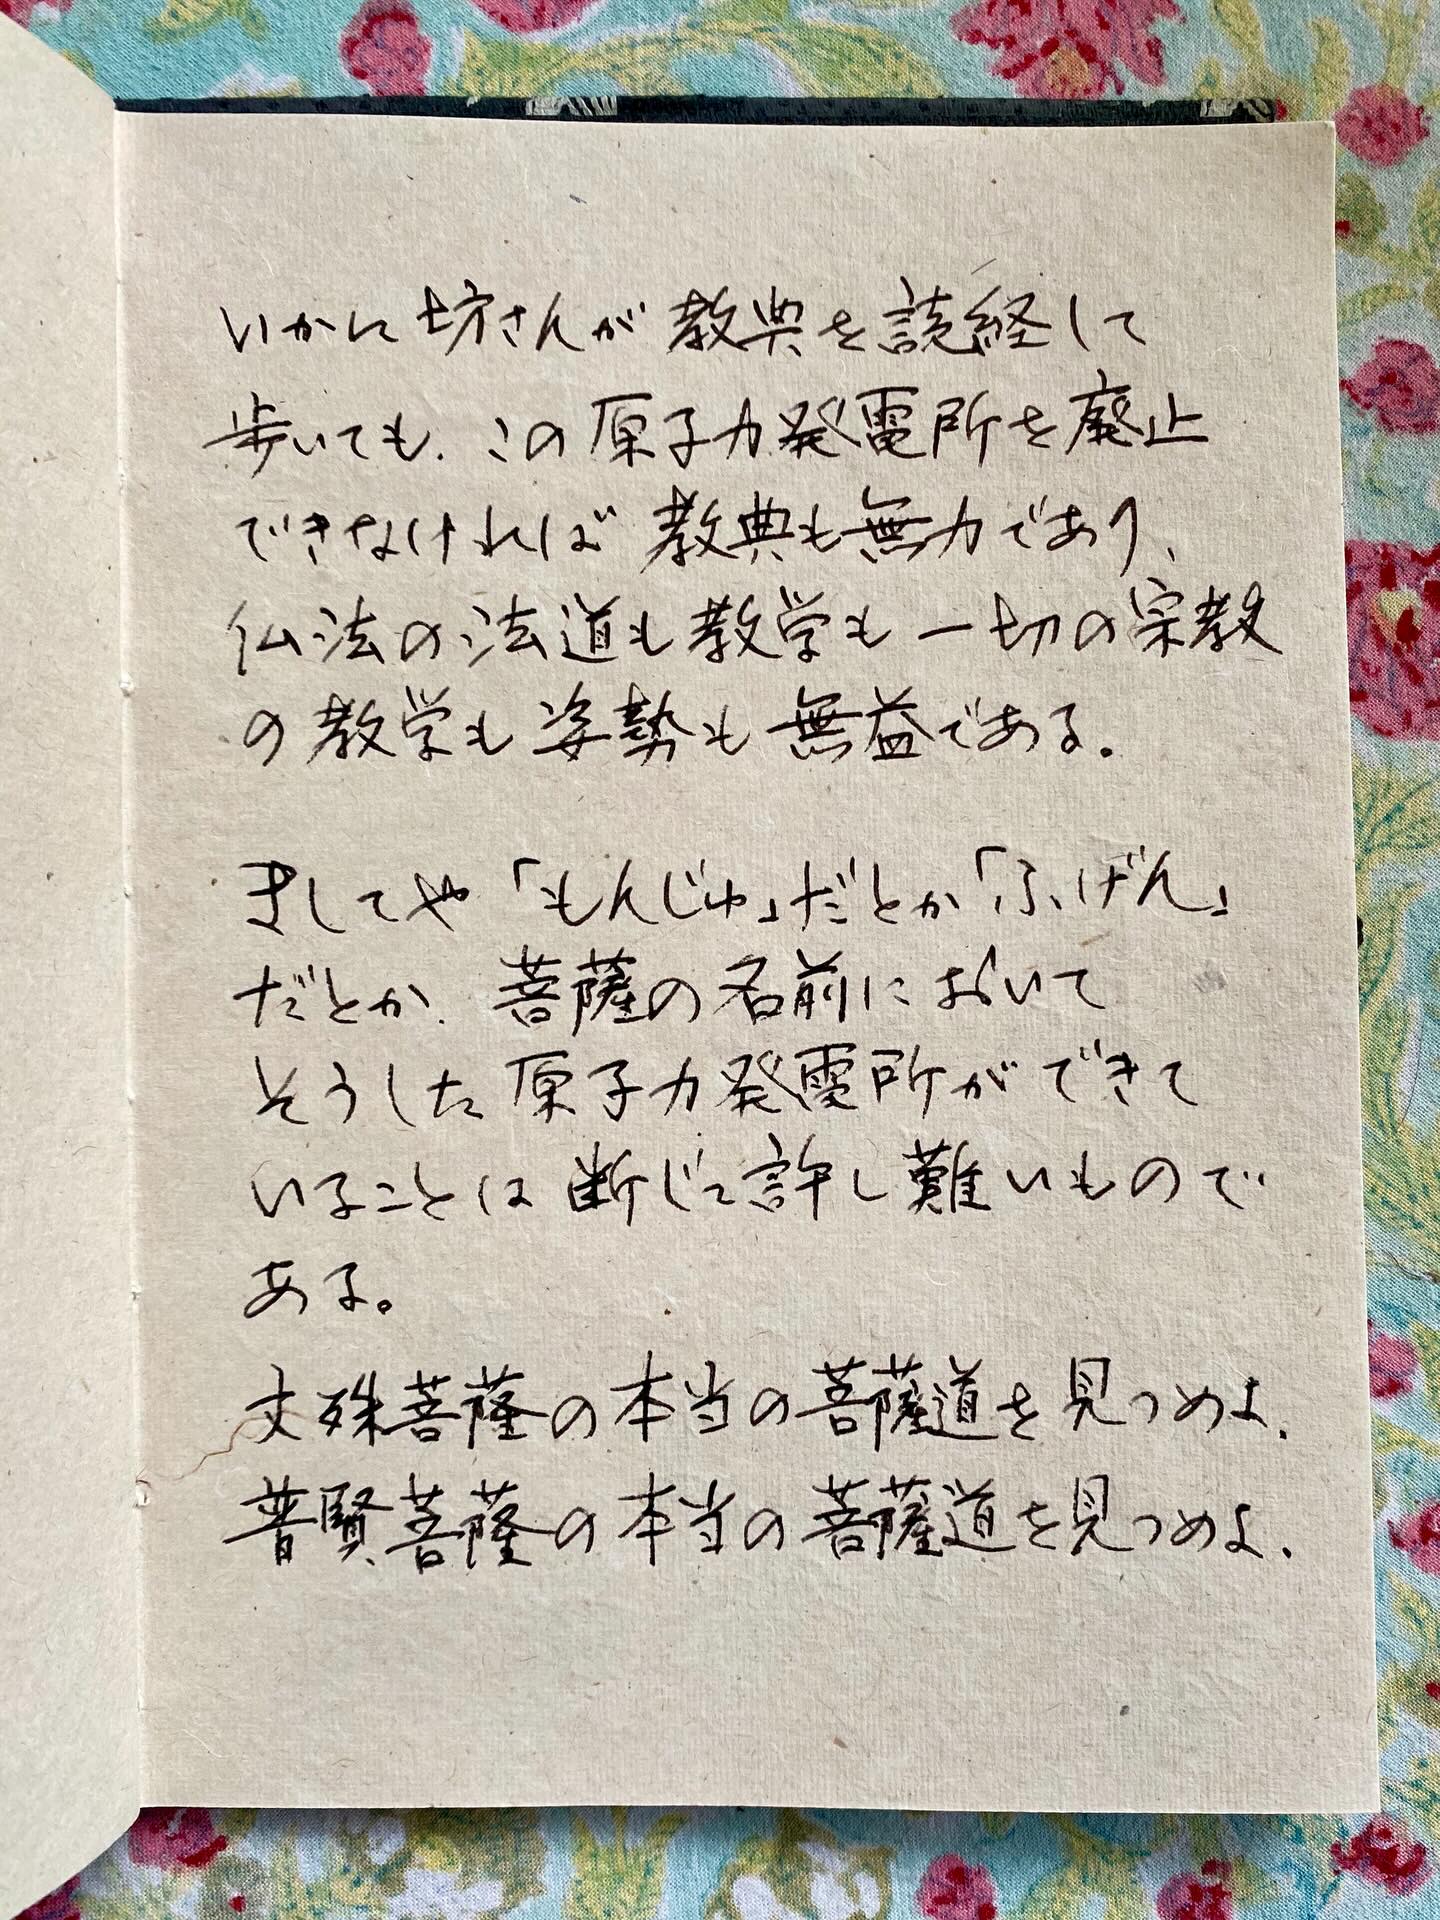 いかに坊さんが教典を読経して
歩いても、この原子力発電所を廃止
できなければ教典も無力であり、
仏法の法道も教学も一切の宗教
の教学も姿勢も無益である。
ましてや「もんじゅ」だとか「ふげん」
だとか、菩薩の名前において
そうした原子力発電所ができて
いることは断じて許し難いもので
ある。
文殊菩薩の本当の菩薩道を見つめよ、
普賢菩薩の本当の菩薩道を見つめよ、